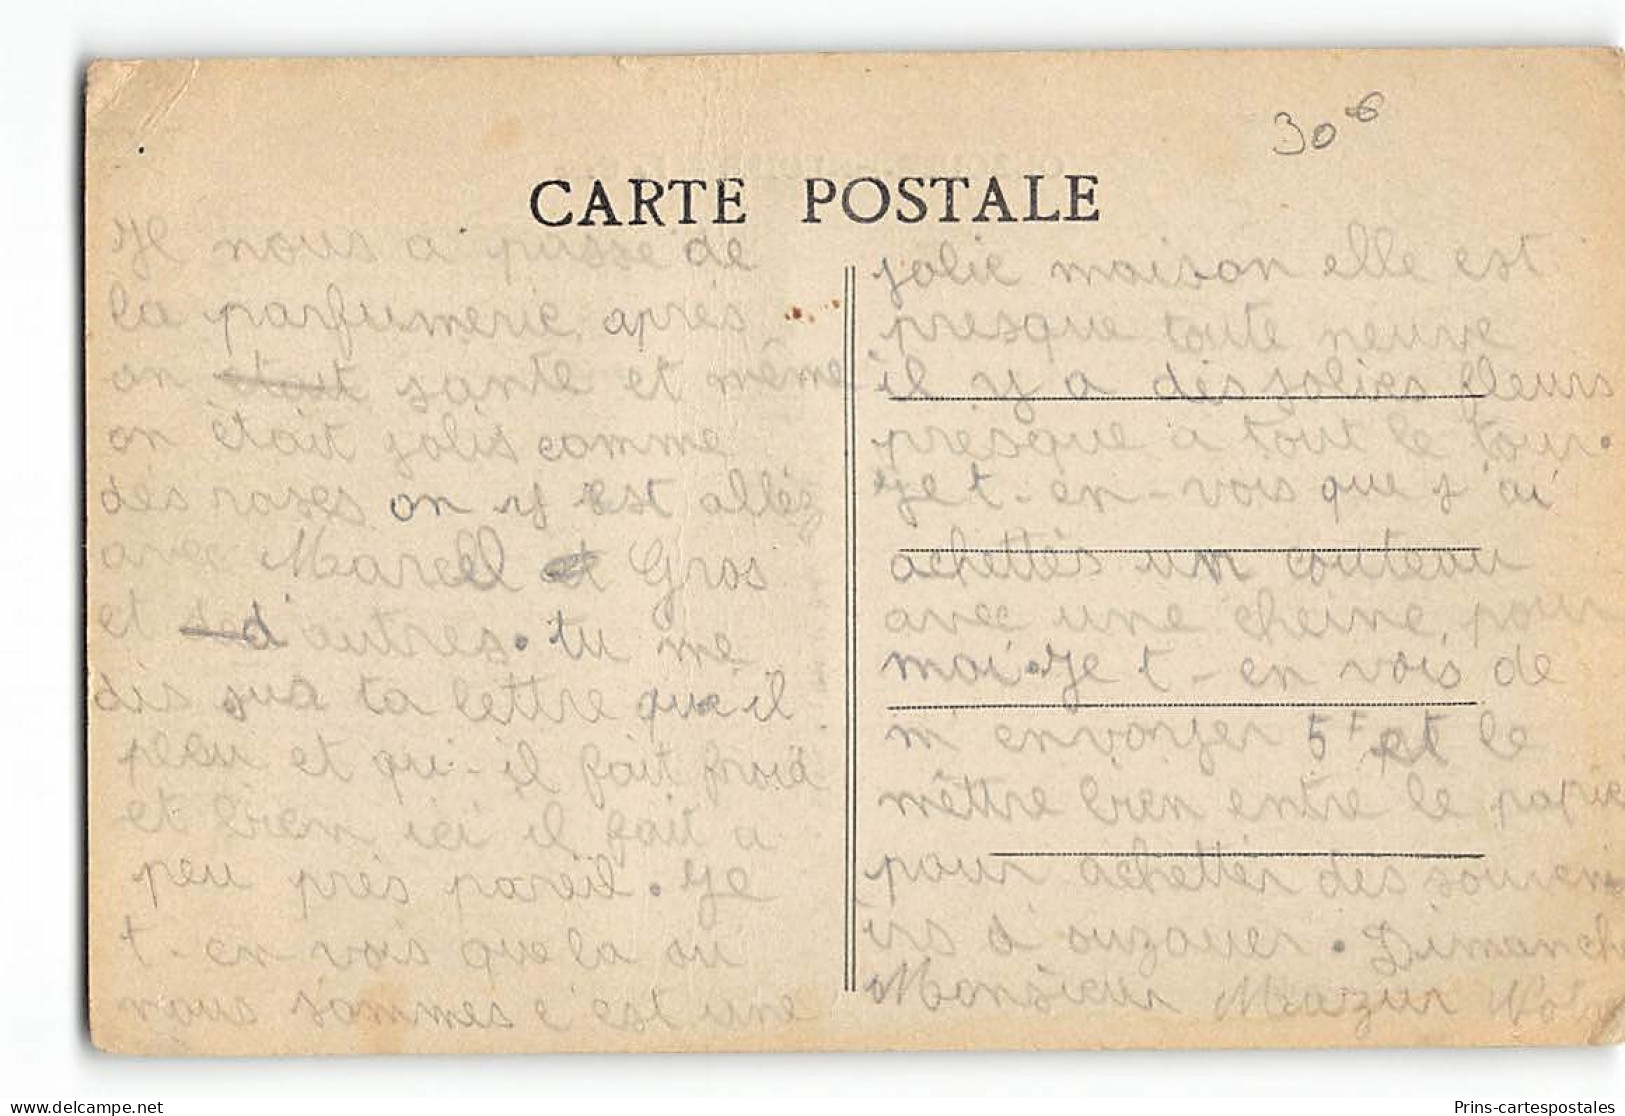 30 €
CARTE POSTALE
Je nous a passé de
la parfumerie après
on était santé et même
on était jolis comme
des roses on y est allés
avec Marcell et Gros
et d'autres. tu me
dis sua ta lettre que il
pleu et qui-il fait froid
et bien ici il fait a
peu près pareil. Je
t-en vois que la ou
nous sommes c'est une
jolie maison elle est
presque toute neuve
il y a des jolies fleurs
presque a tout le tour.
Je t-en-vois que j'ai
achettés un couteau
avec une cheine, pour
moi. Je t-en vois de
m'envoryer 5F et le
mêttre bien entre le papie
pour achetter des souven
irs d'ouzouer. Dimanche
Monsieur
Prins-cartespostales